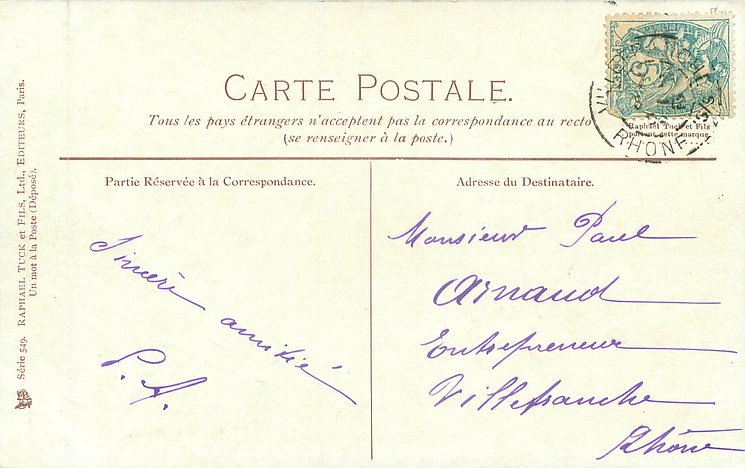 CARTE POSTALE.
Tous les pays étrangers n'acceptent pas la correspondance au recto
(se renseigner à la poste.)
Raphael Tuck et Fils
portent cette marque
RHONE
Partie Réservée à la Correspondance.
Sincère amitié
P. A.
Adresse du Destinataire.
Monsieur Paul
Arnaud
Entrepreneur
Villefranche
Rhône
Série 549. RAPHAEL TUCK et FILS, Ltd., EDITEURS, Paris.
Un mot à la Poste (Déposé).